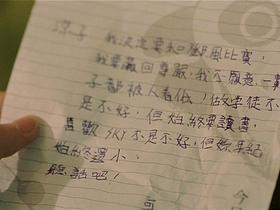 涼子 我決定要和朝風比賽，
我要贏回尊嚴，我不願意一輩
子都被人看低，做學徒不
是不好，但始終要讀書，
喜歡SKY不是不好，但妳年紀
始終還小，
聽話吧！
哥
今